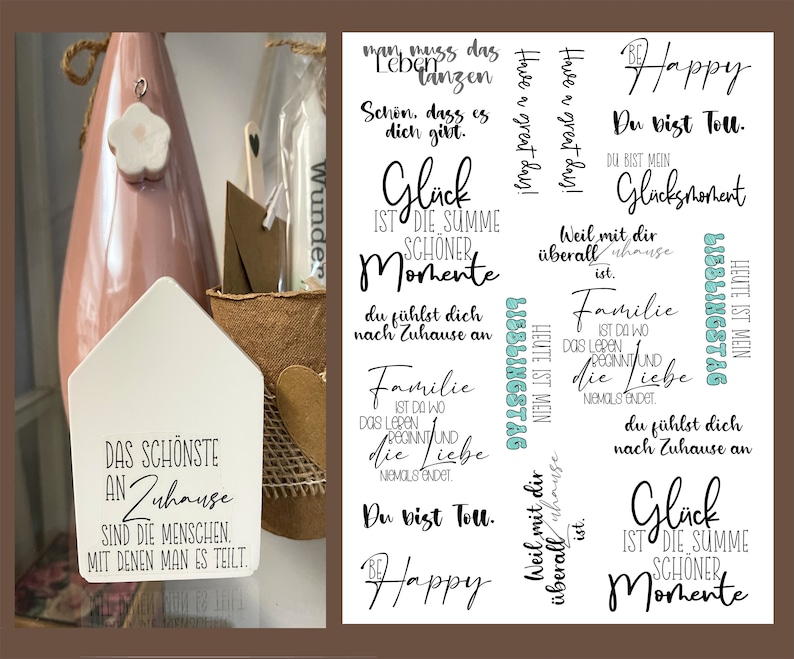 Wunder
DAS SCHÖNSTE
AN Zuhause
SIND DIE MENSCHEN,
MIT DENEN MAN ES TEILT.
man muss das
Leben
tanzen
Schön, dass es
dich gibt.
Glück
IST DIE SUMME
SCHÖNER
Momente
du fühlst dich
nach Zuhause an
Familie
IST DA WO
DAS LEBEN
BEGINNT UND
die Liebe
NIEMALS ENDET.
Du bist Toll.
BE
Happy
Have a great day!
Have a great day!
HEUTE IST MEIN
LIEBLINGSTAG
Weil mit dir
überall Zuhause
ist.
BE
Happy
Du bist Toll.
DU BIST MEIN
Glücksmoment
Weil mit dir
überall Zuhause
ist.
HEUTE IST MEIN
LIEBLINGSTAG
Familie
IST DA WO
DAS LEBEN
BEGINNT UND
die Liebe
NIEMALS ENDET.
du fühlst dich
nach Zuhause an
Glück
IST DIE SUMME
SCHÖNER
Momente